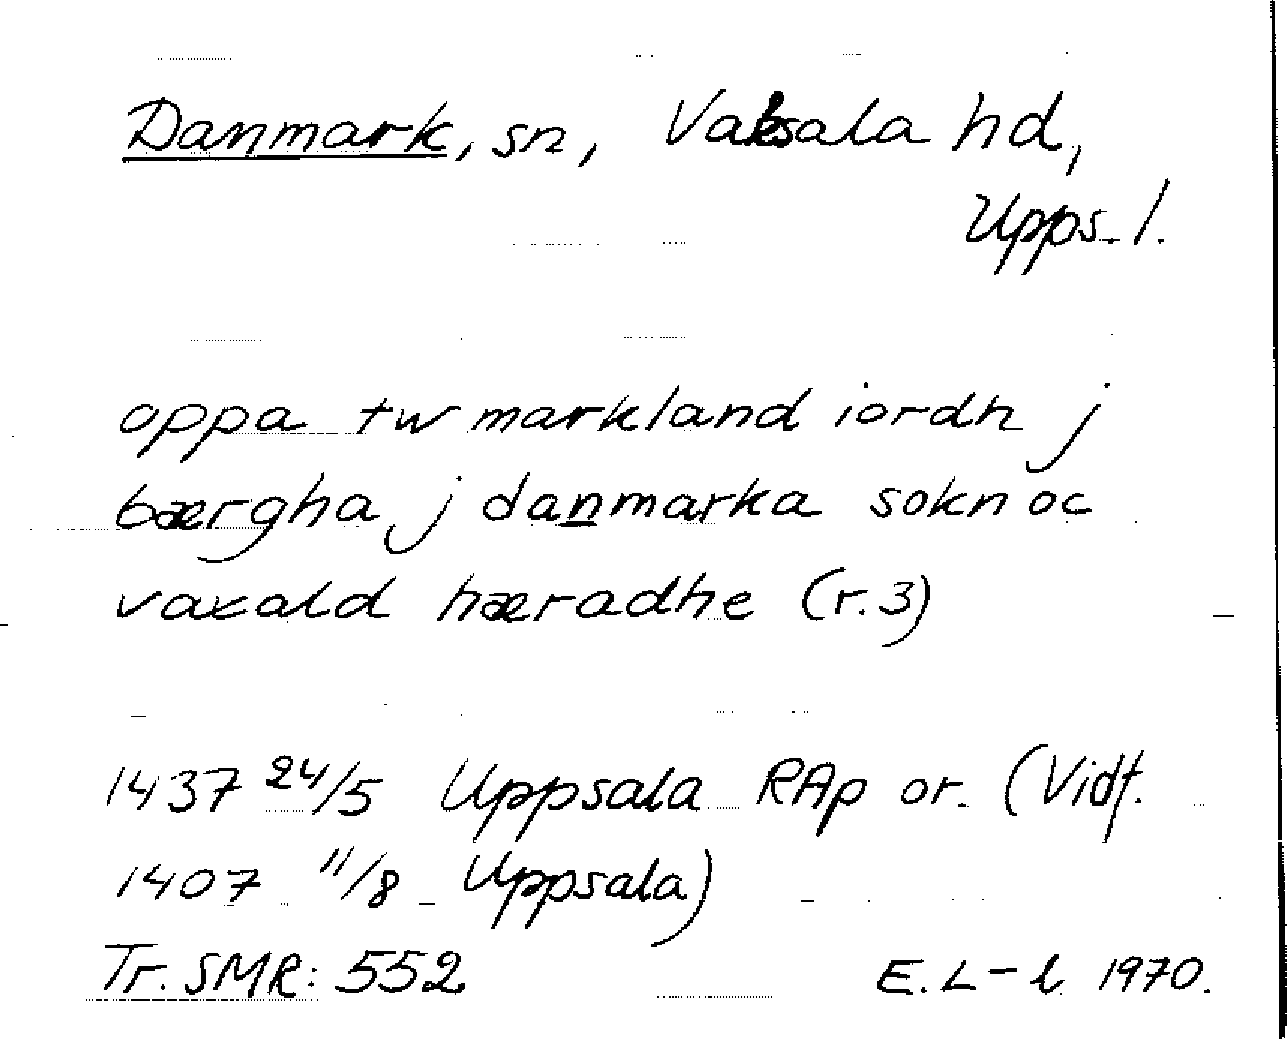 Danmark, sn, Vaksala hd,
Upps. l.
oppa tw markland iordh j
bærgha j danmarka sokn oc
vaxald hæradhe (r. 3)
1437 24/5 Uppsala RAp or. (Vidf.
1407 11/8 Uppsala)
Tr. SMR: 552 E. L-l 1970.